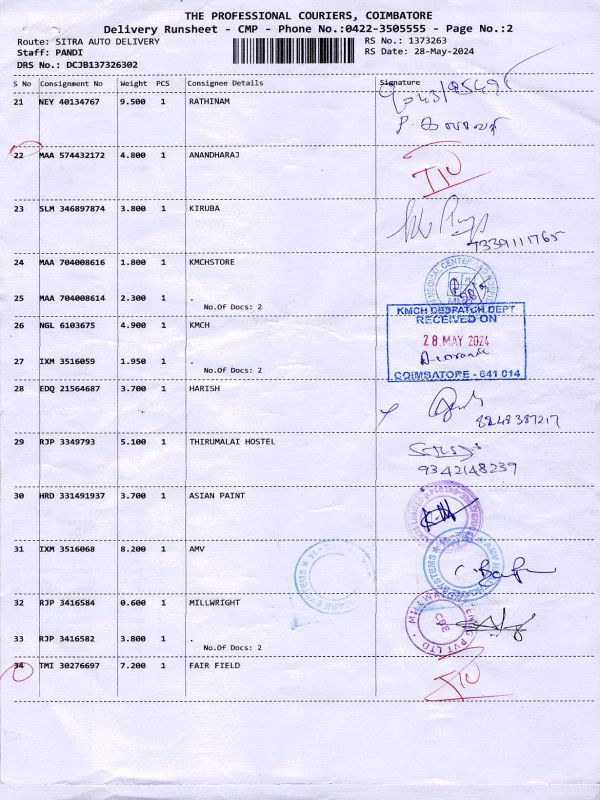 THE PROFESSIONAL COURIERS, COIMBATORE
Delivery Runsheet - CMP - Phone No.:0422-3505555 - Page No.:2
Route: SITRA AUTO DELIVERY RS No.: 1373263
Staff: PANDI RS Date: 28-May-2024
DRS No.: DCJB137326302
S No Consignment No Weight PCS Consignee Details Signature
21 NEY 40134767 9.500 1 RATHINAM
22 MAA 574432172 4.800 1 ANANDHARAJ
23 SLM 346897874 3.800 1 KIRUBA
7339111765
24 MAA 704008616 1.800 1 KMCHSTORE
25 MAA 704008614 2.300 1 .
No.Of Docs: 2
KMCH DESPATCH DEPT
RECEIVED ON
28 MAY 2024
COIMBATORE - 641 014
26 NGL 6103675 4.900 1 KMCH
27 IXM 3516059 1.950 1 .
No.Of Docs: 2
28 EDQ 21564687 3.700 1 HARISH
8248387217
29 RJP 3349793 5.100 1 THIRUMALAI HOSTEL
9342148239
30 HRD 331491937 3.700 1 ASIAN PAINT
31 IXM 3516068 8.200 1 AMV
32 RJP 3416584 0.600 1 MILLWRIGHT
CBE
33 RJP 3416582 3.800 1 .
No.Of Docs: 2
34 TMI 30276697 7.200 1 FAIR FIELD